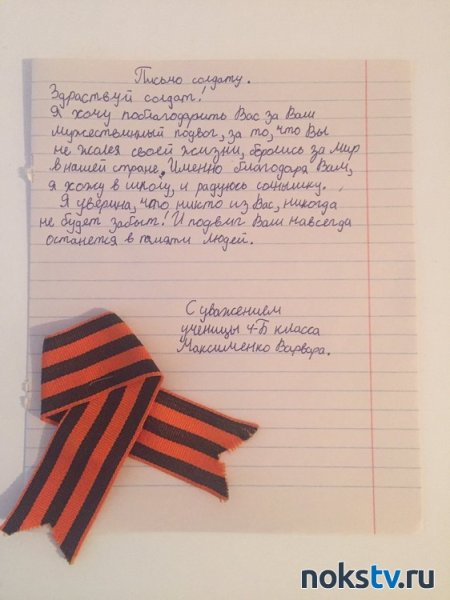 Письмо солдату.
Здраствуй солдат!
Я хочу поблагодарить Вас за Ваш
мужественный подвог, за то, что Вы
не жалея своей жизни, боролись за мир
в нашей стране. Именно благодаря Вам,
я хожу в школу, и радуюсь солнышку.
Я уверина, что никто из Вас, никогда
не будет забыт! И подвиг Ваш навсегда
останется в памяти людей.
С уважением
ученицы 4-Б класса
Максименко Варвара.
nokstv.ru